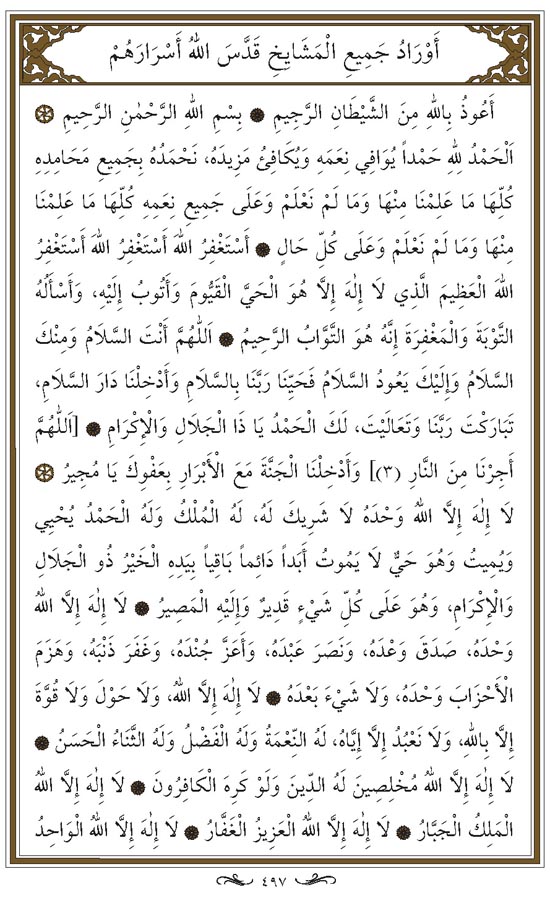 أَوْرَادُ جَمِيعِ الْمَشَايِخِ قَدَّسَ اللهُ أَسْرَارَهُمْ
أَعُوذُ بِاللهِ مِنَ الشَّيْطَانِ الرَّجِيمِ بِسْمِ اللهِ الرَّحْمٰنِ الرَّحِيمِ
اَلْحَمْدُ لِلهِ حَمْداً يُوَافِي نِعَمِهِ وَيُكَافِئُ مَزِيدَهُ، نَحْمَدُهُ بِجَمِيعِ مَحَامِدِهِ
كُلِّهَا مَا عَلِمْنَا مِنْهَا وَمَا لَمْ نَعْلَمْ وَعَلَى جَمِيعِ نِعَمِهِ كُلِّهَا مَا عَلِمْنَا
مِنْهَا وَمَا لَمْ نَعْلَمْ وَعَلَى كُلِّ حَالٍ أَسْتَغْفِرُ اللهَ أَسْتَغْفِرُ اللهَ أَسْتَغْفِرُ
اللهَ الْعَظِيمَ الَّذِي لَا إِلٰهَ إِلَّا هُوَ الْحَيَّ الْقَيُّومَ وَأَتُوبُ إِلَيْهِ، وَأَسْأَلُهُ
التَّوْبَةَ وَالْمَغْفِرَةَ إِنَّهُ هُوَ التَّوَّابُ الرَّحِيمُ اَللّٰهُمَّ أَنْتَ السَّلَامُ وَمِنْكَ
السَّلَامُ وَإِلَيْكَ يَعُودُ السَّلَامُ فَحَيِّنَا رَبَّنَا بِالسَّلَامِ وَأَدْخِلْنَا دَارَ السَّلَامِ،
تَبَارَكْتَ رَبَّنَا وَتَعَالَيْتَ، لَكَ الْحَمْدُ يَا ذَا الْجَلَالِ وَالْإِكْرَامِ [اَللّٰهُمَّ
أَجِرْنَا مِنَ النَّارِ (٣)] وَأَدْخِلْنَا الْجَنَّةَ مَعَ الْأَبْرَارِ بِعَفْوِكَ يَا مُجِيرُ
لَا إِلٰهَ إِلَّا اللهُ وَحْدَهُ لَا شَرِيكَ لَهُ، لَهُ الْمُلْكُ وَلَهُ الْحَمْدُ يُحْيِي
وَيُمِيتُ وَهُوَ حَيٌّ لَا يَمُوتُ أَبَداً دَائِماً بَاقِياً بِيَدِهِ الْخَيْرُ ذُو الْجَلَالِ
وَالْإِكْرَامِ، وَهُوَ عَلَى كُلِّ شَيْءٍ قَدِيرٌ وَإِلَيْهِ الْمَصِيرُ لَا إِلٰهَ إِلَّا اللهُ
وَحْدَهُ، صَدَقَ وَعْدَهُ، وَنَصَرَ عَبْدَهُ، وَأَعَزَّ جُنْدَهُ، وَغَفَرَ ذَنْبَهُ، وَهَزَمَ
الْأَحْزَابَ وَحْدَهُ، وَلَا شَيْءَ بَعْدَهُ لَا إِلٰهَ إِلَّا اللهُ، وَلَا حَوْلَ وَلَا قُوَّةَ
إِلَّا بِاللهِ، وَلَا نَعْبُدُ إِلَّا إِيَّاهُ، لَهُ النِّعْمَةُ وَلَهُ الْفَضْلُ وَلَهُ الثَّنَاءُ الْحَسَنُ
لَا إِلٰهَ إِلَّا اللهُ مُخْلِصِينَ لَهُ الدِّينَ وَلَوْ كَرِهَ الْكَافِرُونَ لَا إِلٰهَ إِلَّا اللهُ
الْمَلِكُ الْجَبَّارُ لَا إِلٰهَ إِلَّا اللهُ الْعَزِيزُ الْغَفَّارُ لَا إِلٰهَ إِلَّا اللهُ الْوَاحِدُ
٤٩٧